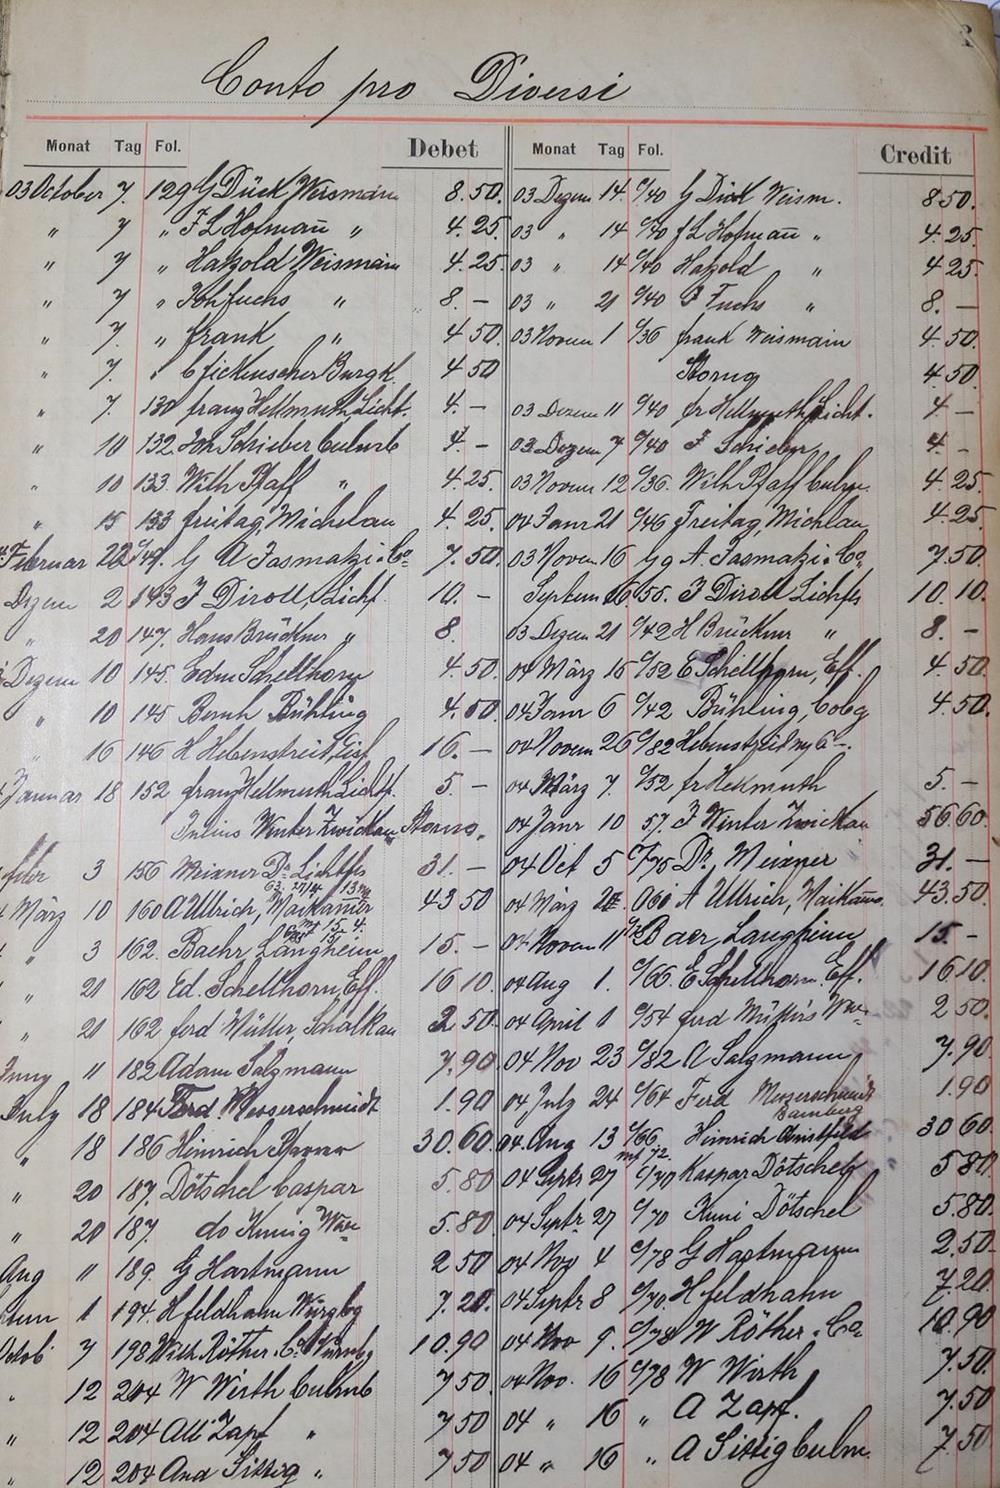 Conto pro Diversi
Monat Tag Fol. Debet Monat Tag Fol. Credit
03 October 7. 129 G Dück Weismain 8.50. 03 Dezem 14. C/40 G Dück Weism. 8 50.
" 7 " F L Hofmann̄ " 4.25. 03 " 14 C/40 f L Hofmann̄ " 4.25
" 7 " Hatzold Weismain 4.25. 03 " 14 C/40 Hatzold " 4 25.
" 7 " Joh fuchs " 8 – 03 " 21 C/40 J Fuchs " 8. –
" 7. " frank " " 4 50. 03 Novem 1 C/36 frank Weismain 4.50.
" 7. " Burgk. 4 50 Storno 4.50.
" 7. 130 franz Hellmuth Licht. 4. – 03 Dezem 11 C/40 fr Hellmuth Licht. 4 –
" 10 132 Joh Schieber Culmb 4 – 03 Dezem 7 C/40 J Schieber 4. –
" 10 133. Wilh Pfaff " 4.25. 03 Novem 12 C/36. Wilh Pfaff Culm. 4 25.
" 15 133 freitag, Michelau 4. 25. 04 Janr 21 C/46 Freitag, Michlau 4.25
Februar 22 G A Jasmatzi & Co 7.50. 03 Novem 16 Gg A. Jasmatzi & Co 7.50
Dezem 2 143 J Diroll, Licht 10. – Septem 16 55. J Diroll Lichfls 10. 10.
" 20 147. Hans Brückner " 8. 03 Dezem 21 C/42 H Brückner " 8. –
Dezem 10 145. Edm Schellhorn 4.50. 04 März 15 C/52 E Schellhorn, Eff. 4. 50.
" 10 145 Bernh Bühling 4.50. 04 Janr 6 C/42 Bühling, Cobg 4. 50.
16 146 H Hebenstreit, Eisf 16. – 04 Novem 26 C/82 Hebenstreit 6 –.
Januar 18 152 franz Hellmuth Licht. 5. – 04 März 7. C/52 fr Hellmuth 5. –
Julius Winter Zwickau Storno. 04 Janr 10 57. J Winter Zwickau 56 60.
feber 3 156 Meixner Dr. Lichtfls 31. – 04 Oct 5 C/75 Dr. Meixner 31. –
März 10 160 A Ullrich, Maikammer 43 50 04 März A Ullrich, Maikamm. 43. 50.
" 3 162. Baehr, Langheim 15. – 04 Novem 11 Baer, Langheim 15. –
" 21 162 Ed. Schellhorn, Eff. 16 10. 04 Aug 1. C/66. E Schellhorn. Eff. 16 10.
" 21 162 ferd Müller, Schalkau 2 50. 04 April 1 C/54 ferd Müllers Wwe 2 50.
Juny 11 182 Adam Salzmann 7.90. 04 Nov 23 C/82 A Salzmann 7.90
July 18 184 Ferd. Messerschmidt 1.90 04 July 24 C/64 Ferd Messerschmidt Bamberg 1.90
" 18 186 Heinrich 30. 60. 04. Aug 13 C/66. Heinrich 30 60.
" 20 187. Dötschel Caspar 5.80 04 Septr 27 C/70 Kaspar Dötschel 5 80.
" 20 187. do Kunig Wwe 5.80. 04 Septr 27 C/70 Kuni Dötschel 5.80.
Aug 11 189. G Hartmann 2 50 04 Nov 4 C/78 G Hartmann 2.50.
1 194. H feldhahn Würzbg 7. 20. 04 Septr 8 C/70. H feldhahn 7.20.
Octob 7 198 Wilh Röther & Co Nürnbg 10.90 04 Nov 9. C/78 W Röther & Co. 10.90
" 12 204 W Wirth Culmb 7 50. 04 Nov. 16 C/78 W Wirth 7.50.
" 12 204 Alb Zapf " 7 50 04 " 16 " A Zapf. 7.50
" 12 204 And Sittig " 7 50 04 " 16 " A Sittig Culm. 7. 50